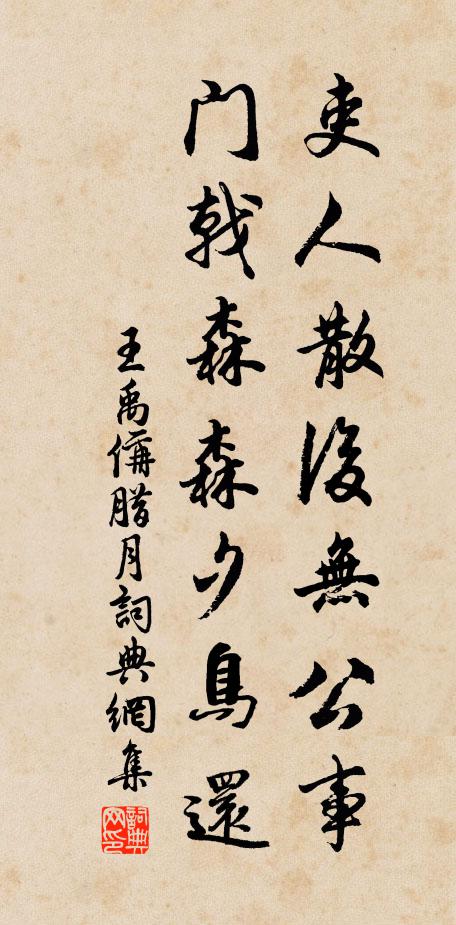 吏人散後無公事
門戟森森夕鳥還
王禹偁腊月詞典網集
詞典網印